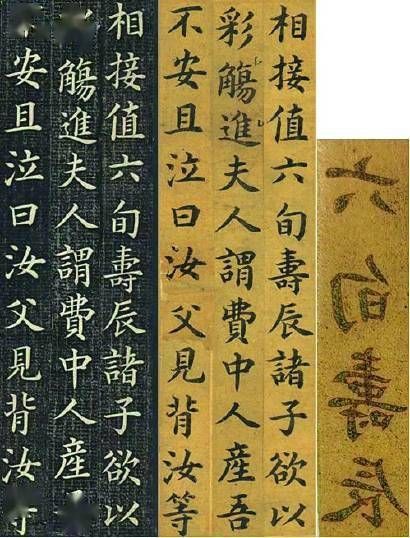 六旬壽辰
相接值六旬壽辰諸子欲以
彩觴進夫人謂費中人産吾
不安且泣曰汝父見背汝等
相接值六旬壽辰諸子欲以
觴進夫人謂費中人産
安且泣曰汝父見背汝